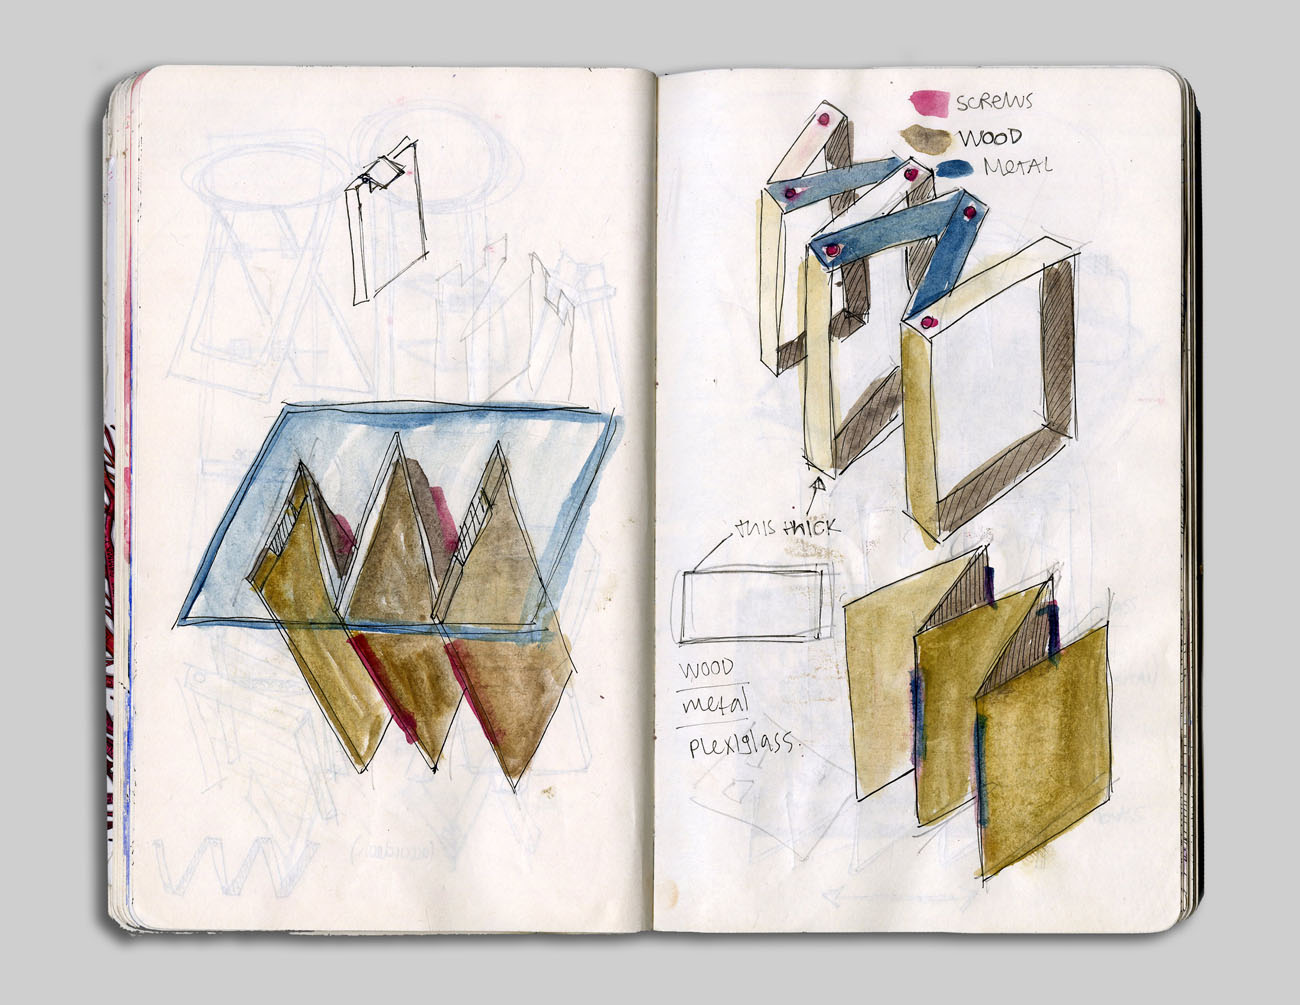 SCREWS
WOOD
METAL
this thick
WOOD
metal
plexiglass.
(accordeon)